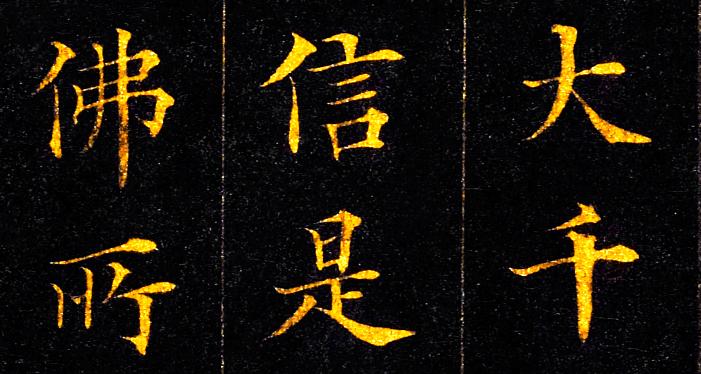 大千
信是
佛所